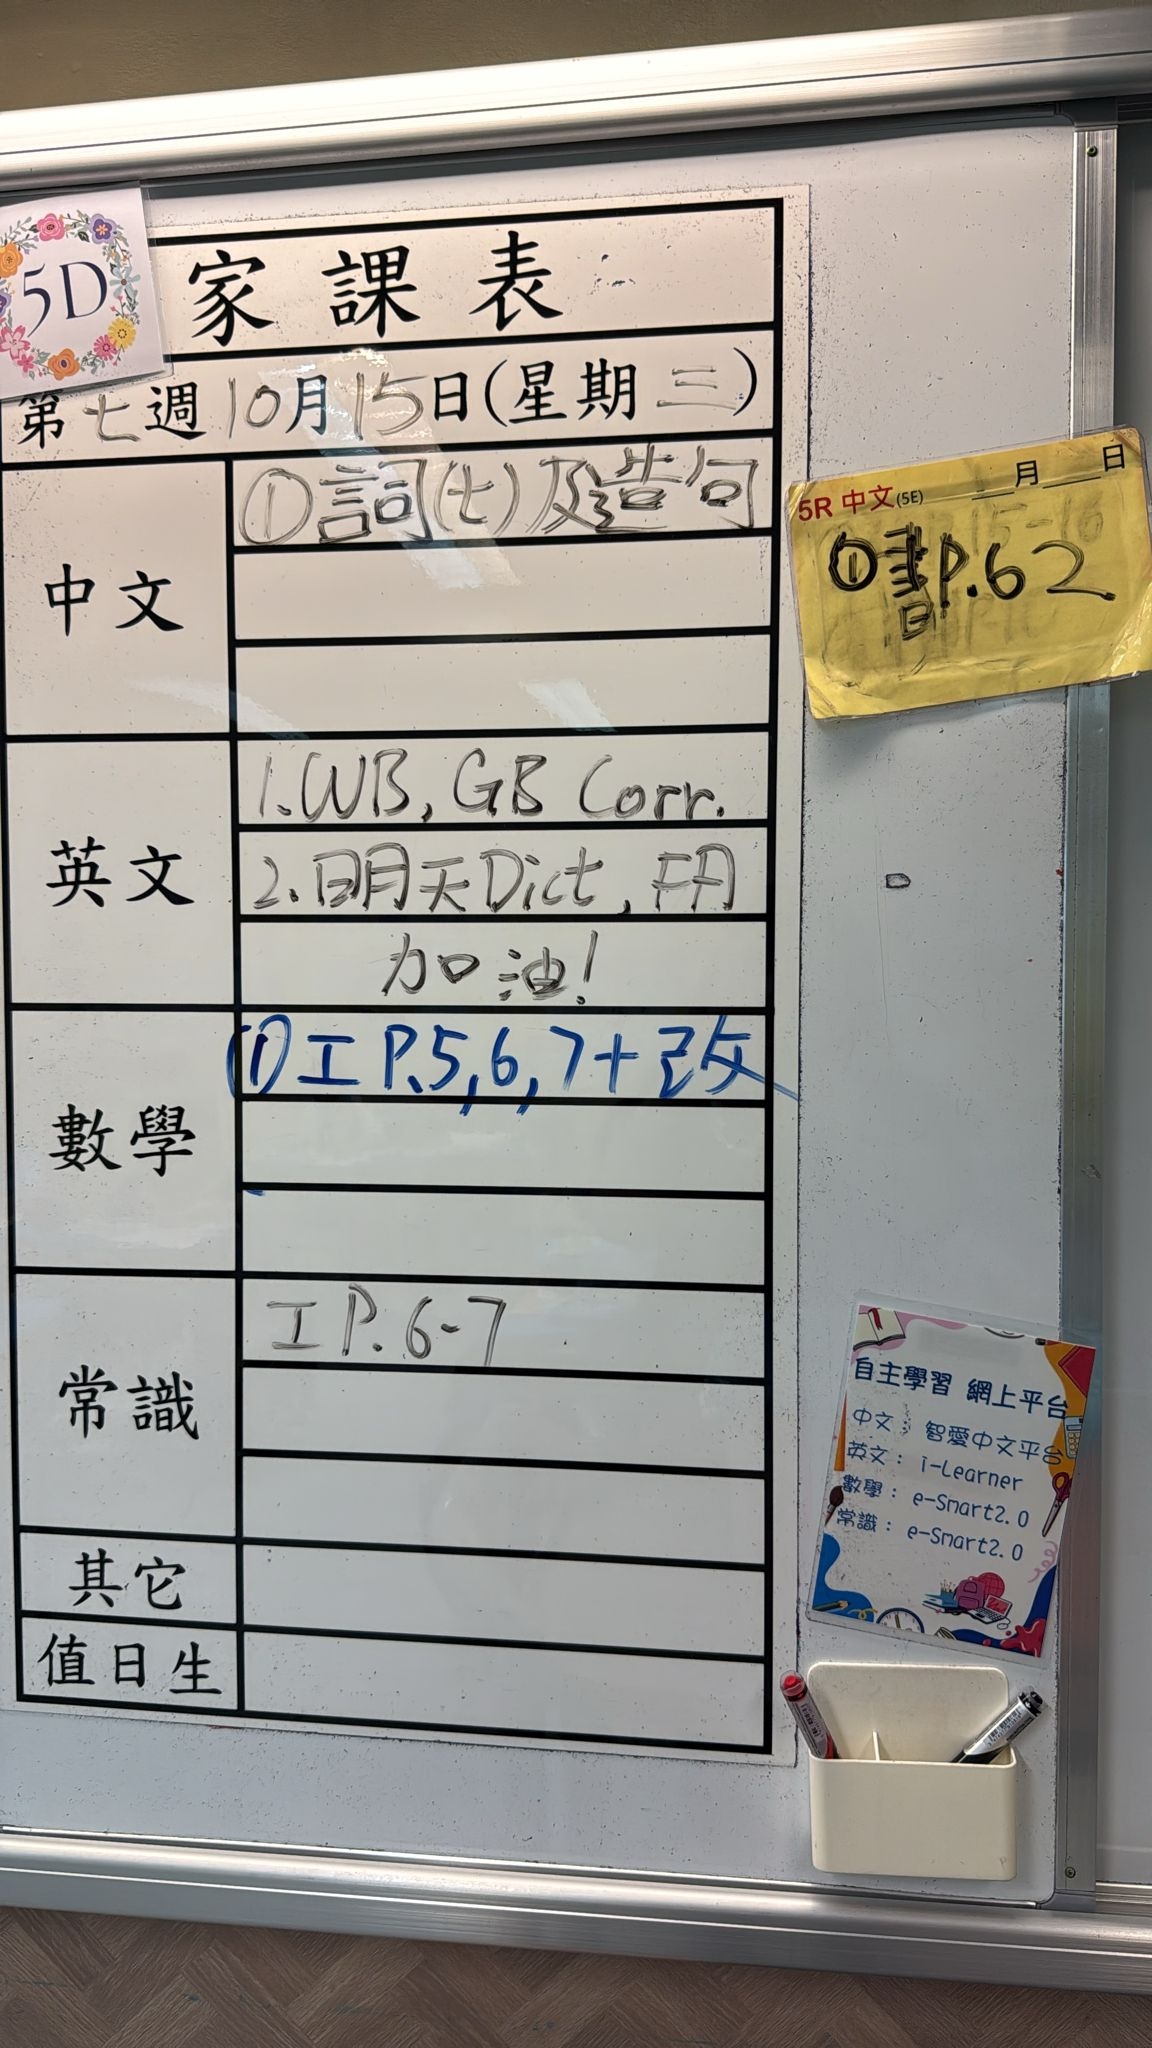 5D
家課表
第七週10月15日(星期三)
中文
①詞(七)及造句
英文
1.WB, GB Corr.
2.明天Dict, FA
加油!
數學
①工P.5,6,7+改
常識
工P.6-7
其它
值日生
5R 中文(5E) __月__日
①書P.62
自主學習 網上平台
中文： 智愛中文平台
英文： i-Learner
數學： e-Smart2.0
常識： e-Smart2.0